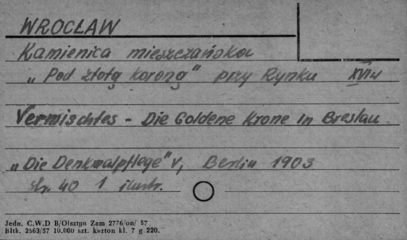 WROCŁAW
Kamienica mieszczańska
„Pod złotą koroną" przy Rynku XVIw
Vermischtes - Die Goldene Krone in Breslau.
„Die Denkmalpflege" V, Berlin 1903
str. 40 1 ilustr.
Jedn. C.W.D B/Olsztyn Zam 2776/on/ 57
Bltk. 2563/57 10.000 szt. karton kl. 7 g 220.